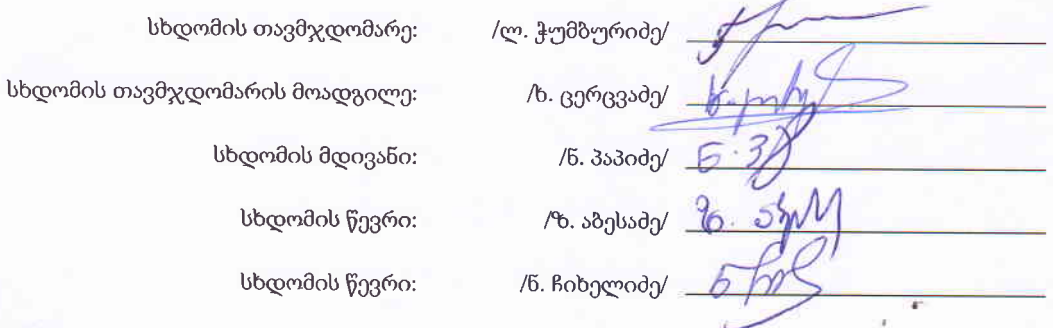 სხდომის თავმჯდომარე: /ლ. ჭუმბურიძე/
სხდომის თავმჯდომარის მოადგილე: /ხ. ცერცვაძე/
სხდომის მდივანი: /ნ. პაპიძე/
სხდომის წევრი: /ზ. აბესაძე/
სხდომის წევრი: /ნ. ჩიხელიძე/